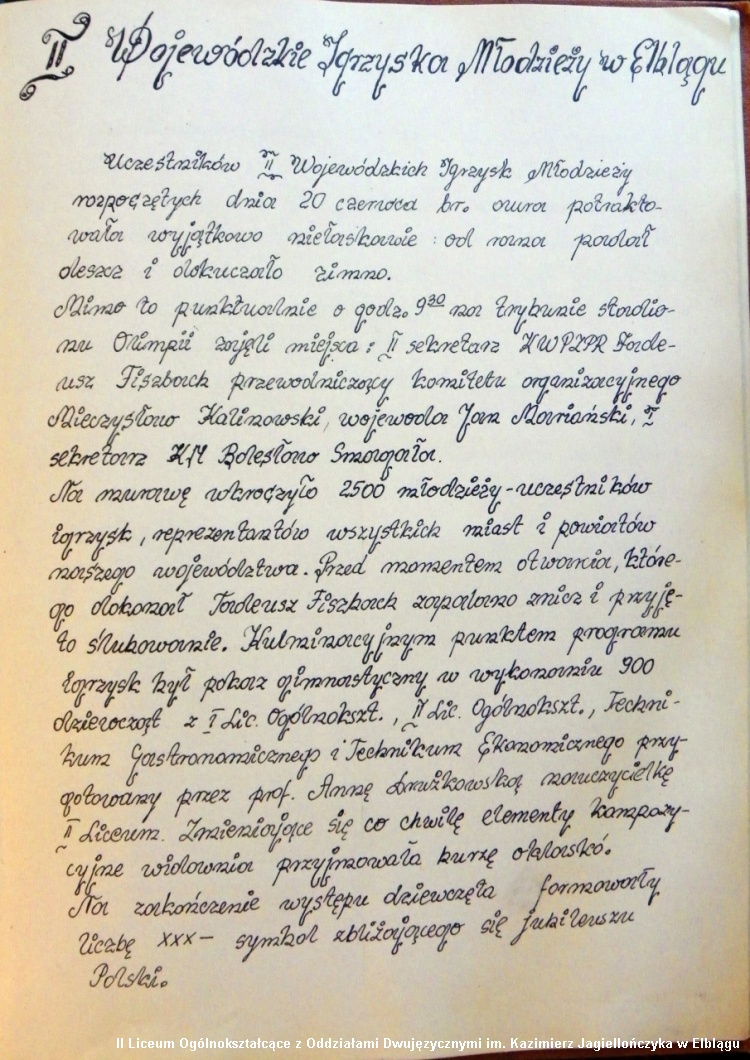 II Wojewódzkie Igrzyska Młodzieży w Elblągu
Uczestników II Wojewódzkich Igrzysk Młodzieży
rozpoczętych dnia 20 czerwca br. aura potrakto-
wała wyjątkowo niełaskawie: od rana padał
deszcz i dokuczało zimno.
Mimo to punktualnie o godz. 9³⁰ na trybunie stadio-
nu Olimpii zajęli miejsca: II sekretarz KWPZPR Tade-
usz Fiszbach przewodniczący komitetu organizacyjnego
Mieczysław Kalinowski, wojewoda Jan Mariański, I
sekretarz KM Bolesław Smagała.
Na murawę wkroczyło 2500 młodzieży-uczestników
igrzysk, reprezentantów wszystkich miast i powiatów
naszego województwa. Przed momentem otwarcia, które-
go dokonał Tadeusz Fiszbach zapalono znicz i przyję-
to ślubowanie. Kulminacyjnym punktem programu
Igrzysk był pokaz gimnastyczny w wykonaniu 900
dziewcząt z I Lic. Ogólnokszt., II Lic. Ogólnokszt., Techni-
kum Gastronomicznego i Technikum Ekonomicznego przy-
gotowany przez prof. Annę Drużkowską nauczycielkę
II Liceum. Zmieniające się co chwilę elementy kompozy-
cyjne widownia przyjmowała burzę oklasków.
Na zakończenie występu dziewczęta formowały
liczbę XXX – symbol zbliżającego się jubileuszu
Polski.
II Liceum Ogólnokształcące z Oddziałami Dwujęzycznymi im. Kazimierz Jagiellończyka w Elblągu